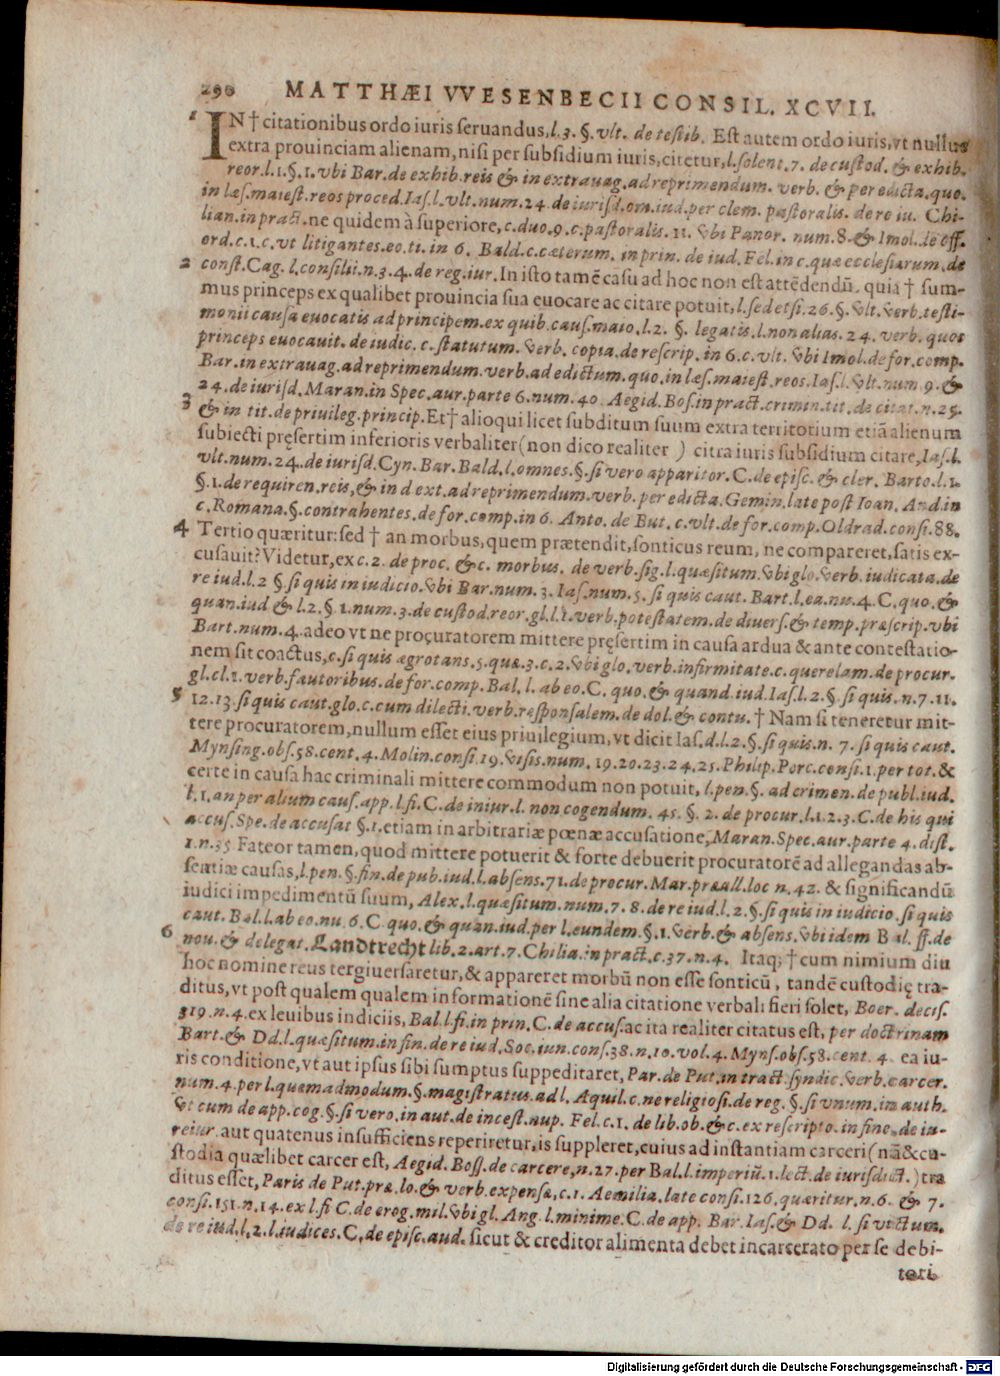 290 MATTHÆI VVESENBECII CONSIL. XCVII.
1 IN † citationibus ordo iuris seruandus, l. 3. §. vlt. de testib. Est autem ordo iuris, vt nullus
extra prouinciam alienam, nisi per subsidium iuris, citetur, l. solent. 7. de custod. & exhib.
reor. l. 1. §. 1. vbi Bar. de exhib. reis & in extrauag. ad reprimendum. verb. & per edicta. quo.
in læs. maiest. reos proced. Ias. l. vlt. num. 24. de iurisd. om. iud. per clem. pastoralis. de re iu. Chi-
lian. in pract. ne quidem à superiore, c. duo. 9. c. pastoralis. 11. vbi Panor. num. 8. & Imol. de off.
ord. c. 1. c. vt litigantes. eo. ti. in 6. Bald. c. cæterum. in prin. de iud. Fel. in c. quæ ecclesiarum. de
2 const. Cag. l. consilii. n. 3. 4. de reg. iur. In isto tamē casu ad hoc non est attēdendū. quia † sum-
mus princeps ex qualibet prouincia sua euocare ac citare potuit, l. sed etsi. 26. §. vlt. verb. testi-
monii causa euocatis ad principem. ex quib. caus. maio. l. 2. §. legatis. l. non alias. 24. verb. quos
princeps euocauit. de iudic. c. statutum. verb. copia. de rescrip. in 6. c. vlt. vbi Imol. de for. comp.
Bar. in extrauag. ad reprimendum. verb. ad edictum. quo. in læs. maiest. reos. Ias. l. vlt. num. 9. &
24. de iurisd. Maran. in Spec. aur. parte 6. num. 40. Aegid. Bos. in pract. crimin. tit. de citat. n. 25.
3 & in tit. de priuileg. princip. Et † alioqui licet subditum suum extra territotium etiā alienum
subiecti pręsertim inferioris verbaliter (non dico realiter ) citra iuris subsidium citare, Ias. l.
vlt. num. 24. de iurisd. Cyn. Bar. Bald. l. omnes. §. si vero apparitor. C. de episc. & cler. Barto. l. 1.
§. 1. de requiren. reis, & in d ext. ad reprimendum. verb. per edicta. Gemin. late post Ioan. And. in
c. Romana. §. contrahentes. de for. comp. in 6. Anto. de But. c. vlt. de for. comp. Oldrad. consi. 88.
4 Tertio quæritur: sed † an morbus, quem prætendit, sonticus reum, ne compareret, satis ex-
cusauit? Videtur, ex c. 2. de proc. & c. morbus. de verb. sig. l. quæsitum. vbi glo. verb. iudicata. de
re iud. l. 2 §. si quis in iudicio. vbi Bar. num. 3. Ias. num. 5. si quis caut. Bart. l. ea. nu. 4. C. quo. &
quan. iud & l. 2. §. 1. num. 3. de custod. reor. gl. l. 1. verb. potestatem. de diuers. & temp. præscrip. vbi
Bart. num. 4. adeo vt ne proçuratorem mittere pręsertim in causa ardua & ante contestatio-
nem sit coactus, c. si quis ægrotans. 5. quæ. 3. c. 2. vbi glo. verb. infirmitate. c. querelam. de procur.
gl. cl. 1. verb. fautoribus. de for. comp. Bal. l. ab eo. C. quo. & quand. iud. Ias. l. 2. §. si quis. n. 7. 11.
5 12. 13. si quis caut. glo. c. cum dilecti. verb. responsalem. de dol. & contu. † Nam si teneretur mit-
tere procuratorem, nullum esset eius priuilegium, vt dicit Ias. d. l. 2. §. si quis. n. 7. si quis caut.
Mynsing. obs. 58. cent. 4. Molin. consi. 19. visis. num. 19. 20. 23. 24. 25. Philip. Porc. consi. 1. per tot. &
certe in causa hac criminali mittere commodum non potuit, l. pen. §. ad crimen. de publ. iud.
l. 1. an per alium caus. app. l. fi. C. de iniur. l. non cogendum. 45. §. 2. de procur. l. 1. 2. 3. C. de his qui
accus. Spe. de accusat §. 1. etiam in arbitrariæ pœnæ accusatione, Maran. Spec. aur. parte 4. dist.
1. n. 35 Fateor tamen, quod mittere potuerit & forte debuerit procuratorē ad allegandas ab-
sentiæ causas, l. pen. §. fin. de pub. iud. l. absens. 71. de procur. Mar. præall. loc n. 42. & significandū
iudici impedimentū suum, Alex. l. quæsitum. num. 7. 8. de re iud. l. 2. §. si quis in iudicio. si quis
caut. Bal. l. ab eo. nu. 6. C. quo. & quan. iud. per l. eundem. §. 1. verb. & absens. vbi idem Bal. ff. de
6 nou. & delegat. Landtrecht lib. 2. art. 7. Chilia. in pract. c. 37. n. 4. Itaq; † cum nimium diu
hoc nomine reus tergiuersaretur, & appareret morbū non esse sonticū, tandē custodię tra-
ditus, vt post qualem qualem informationē sine alia citatione verbali fieri solet, Boer. decis.
319. n. 4. ex leuibus indiciis, Bal. l. fi. in prin. C. de accus. ac ita realiter citatus est, per doctrinam
Bart. & Dd. l. quæsitum. in fin. de re iud. Soc. iun. cons. 38. n. 10. vol. 4. Myns. obs. 58. cent. 4. ea iu-
ris conditione, vt aut ipsus sibi sumptus suppeditaret, Par. de Put. in tract. syndic. verb. carcer.
num. 4. per l. quemadmodum. §. magistratus. ad l. Aquil. c. ne religiosi. de reg. §. si vnum. in auth.
vt cum de app. cog. §. si vero. in aut. de incest. nup. Fel. c. 1. de lib. ob. & c. ex rescripto. in fine. de iu-
reiur. aut quatenus insufficiens reperiretur, is suppleret, cuius ad instantiam carceri (nā & cu-
stodia quælibet carcer est, Aegid. Boss. de carcere, n. 27. per Bal. l. imperiū. 1. lect. de iurisdict.) tra
ditus esset, Paris de Put. præ. lo. & verb. expensa, c. 1. Aemilia. late consi. 126. quæritur. n. 6. & 7.
consi. 151. n. 14. ex l. fi C. de erog. mil. vbi gl. Ang. l. minime. C. de app. Bar. Ias. & Dd. l. si victum.
de re iud. l. 2. l. iudices. C. de episc. aud. sicut & creditor alimenta debet incarcerato per se debi-
tori.
Digitalisierung gefördert durch die Deutsche Forschungsgemeinschaft - DFG